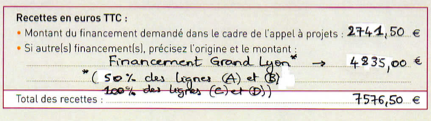 Recettes en euros TTC :
• Montant du financement demandé dans le cadre de l'appel à projets : 2741,50 €
• Si autre(s) financement(s), précisez l'origine et le montant :
Financement Grand Lyon* → 4835,00 €
*( 50% des lignes (A) et (B)
100% des lignes (C) et (D))
Total des recettes : 7576,50 €